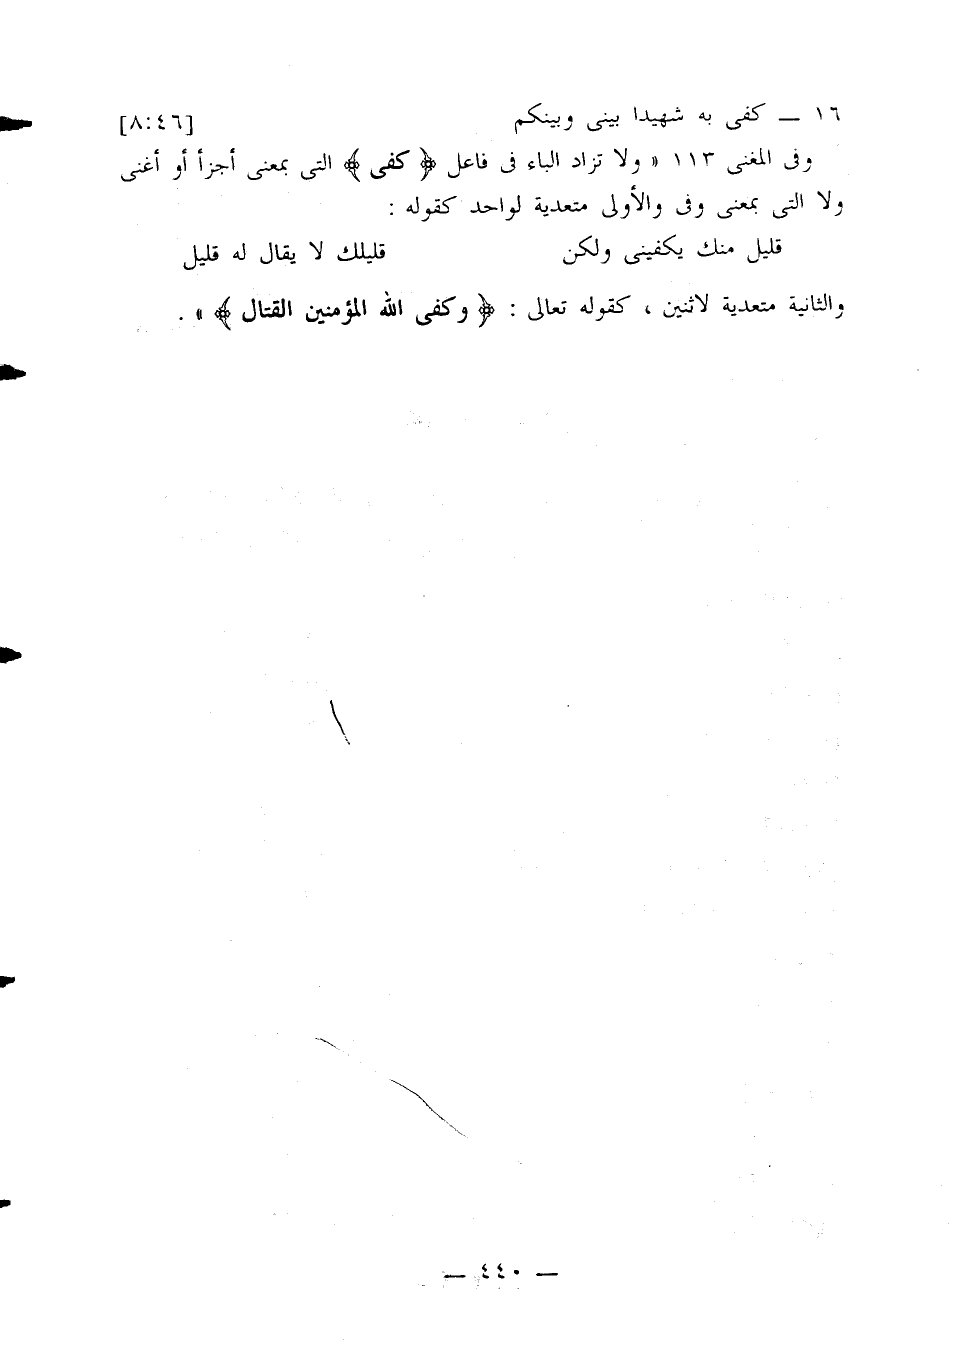 ١٦ — كفى به شهيدا بينى وبينكم [٨:٤٦]
وفى المغنى ١١٣ « ولا تزاد الباء فى فاعل ﴿ كفى ﴾ التى بمعنى أجزأ أو أغنى
ولا التى بمعنى وفى والأولى متعدية لواحد كقوله :
قليل منك يكفينى ولكن قليلك لا يقال له قليل
والثانية متعدية لاثنين ، كقوله تعالى : ﴿ وكفى الله المؤمنين القتال ﴾ » .
— ٤٤٠ —